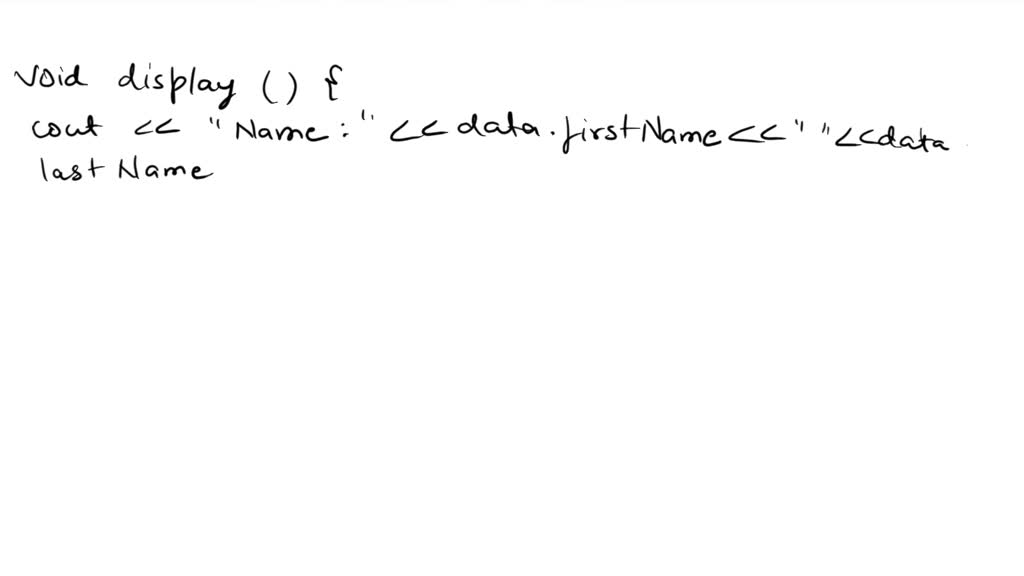 void display () {
cout << "Name: " << data.firstName << " " << data.
lastName